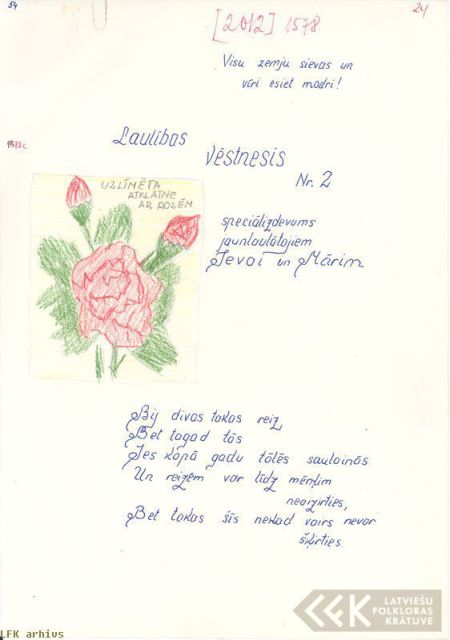 54
24
[2012] 1578
Visu zemju sievas un
vīri esiet modri!
1513c
Laulības
Vēstnesis
Nr. 2
UZLĪMĒTA
ATKLĀTNE
AR ROZĒM
speciālizdevums
jaunlaulātajiem
Ievai un Mārim
Bij divas takas reiz
Bet tagad tās
Ies kopā gadu tālēs saulainās
Un reizēm var līdz mērķim
neaiziet,
Bet takas šīs nekad vairs nevar
šķirties.
LFK arhivs
LFK
LATVIEŠU
FOLKLORAS
KRĀTUVE